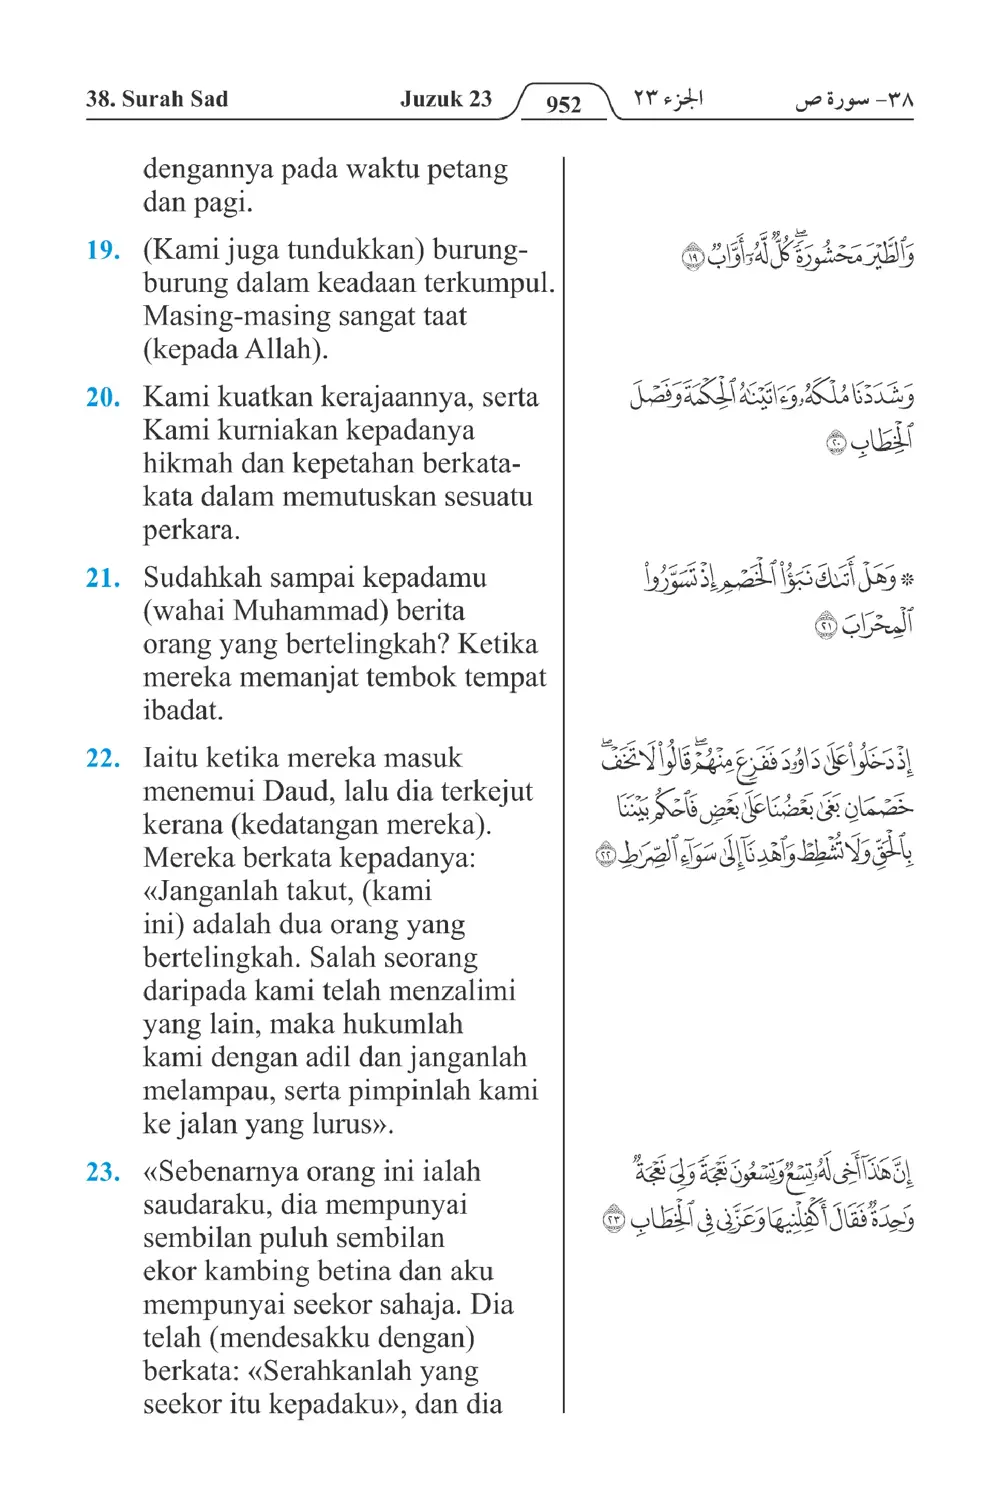 38. Surah Sad
Juzuk 23
952
الجزء ٢٣
٣٨- سورة ص
dengannya pada waktu petang
dan pagi.
19. (Kami juga tundukkan) burung-
burung dalam keadaan terkumpul.
Masing-masing sangat taat
(kepada Allah).
وَٱلطَّيۡرَ مَحۡشُورَةٗۖ كُلّٞ لَّهُۥٓ أَوَّابٞ ١٩
20. Kami kuatkan kerajaannya, serta
Kami kurniakan kepadanya
hikmah dan kepetahan berkata-
kata dalam memutuskan sesuatu
perkara.
وَشَدَدۡنَا مُلۡكَهُۥ وَءَاتَيۡنَٰهُ ٱلۡحِكۡمَةَ وَفَصۡلَ
ٱلۡخِطَابِ ٢٠
21. Sudahkah sampai kepadamu
(wahai Muhammad) berita
orang yang bertelingkah? Ketika
mereka memanjat tembok tempat
ibadat.
* وَهَلۡ أَتَىٰكَ نَبَؤُاْ ٱلۡخَصۡمِ إِذۡ تَسَوَّرُواْ
ٱلۡمِحۡرَابَ ٢١
22. Iaitu ketika mereka masuk
menemui Daud, lalu dia terkejut
kerana (kedatangan mereka).
Mereka berkata kepadanya:
«Janganlah takut, (kami
ini) adalah dua orang yang
bertelingkah. Salah seorang
daripada kami telah menzalimi
yang lain, maka hukumlah
kami dengan adil dan janganlah
melampau, serta pimpinlah kami
ke jalan yang lurus».
إِذۡ دَخَلُواْ عَلَىٰ دَاوُۥدَ فَفَزِعَ مِنۡهُمۡۖ قَالُواْ لَا تَخَفۡۖ
خَصۡمَانِ بَغَىٰ بَعۡضُنَا عَلَىٰ بَعۡضٖ فَٱحۡكُم بَيۡنَنَا
بِٱلۡحَقِّ وَلَا تُشۡطِطۡ وَٱهۡدِنَآ إِلَىٰ سَوَآءِ ٱلصِّرَٰطِ ٢٢
23. «Sebenarnya orang ini ialah
saudaraku, dia mempunyai
sembilan puluh sembilan
ekor kambing betina dan aku
mempunyai seekor sahaja. Dia
telah (mendesakku dengan)
berkata: «Serahkanlah yang
seekor itu kepadaku», dan dia
إِنَّ هَٰذَآ أَخِي لَهُۥ تِسۡعٞ وَتِسۡعُونَ نَعۡجَةٗ وَلِيَ نَعۡجَةٞ
وَٰحِدَةٞ فَقَالَ أَكۡفِلۡنِيهَا وَعَزَّنِي فِي ٱلۡخِطَابِ ٢٣